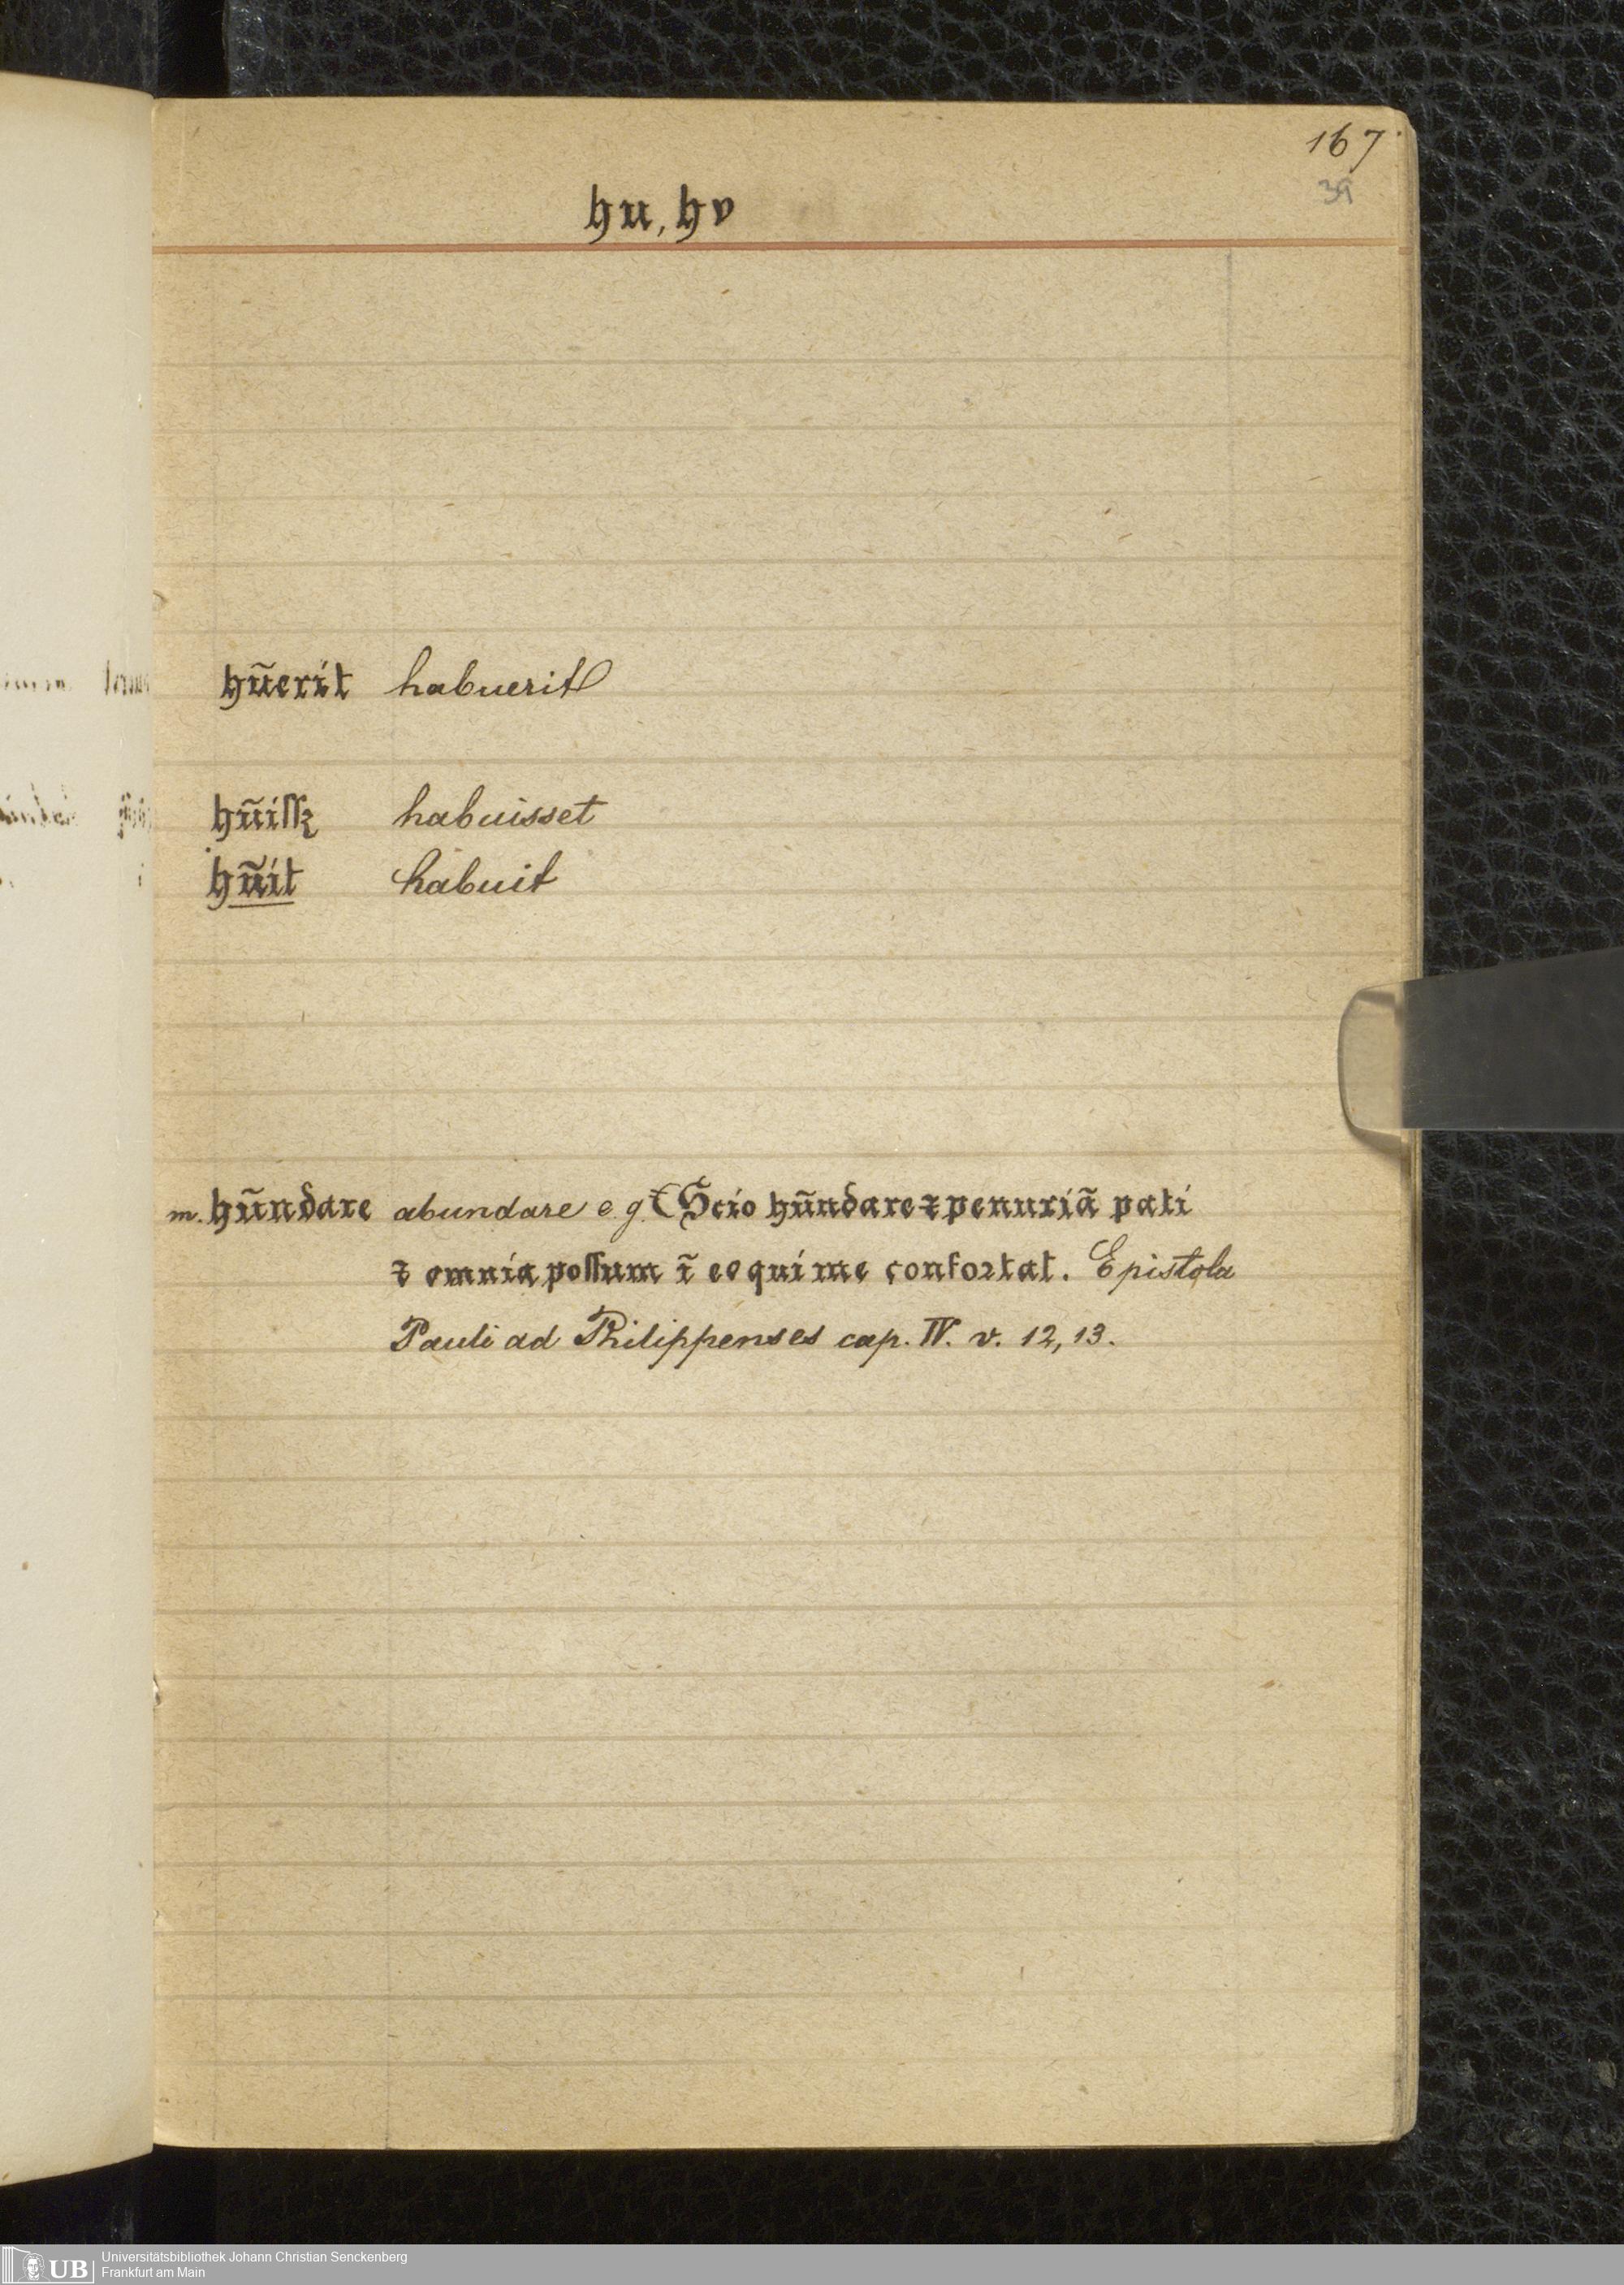 167
39
hu, hv
hũerit habuerit
hũiſſꝫ habuisset
hũit habuit
m. hũndare abundare e. g. Scio hũndare ⁊ penuriã pati
⁊ omnia poſſum ĩ eo qui me confoꝛtat. Epistola
Pauli ad Philippenses cap. IV. v. 12, 13.
UB
Universitätsbibliothek Johann Christian Senckenberg
Frankfurt am Main